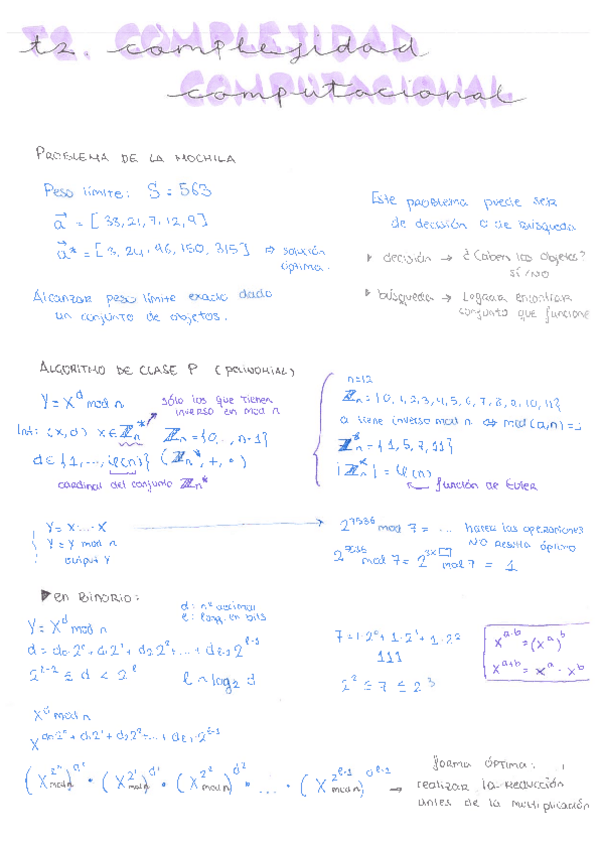 T2. COMPLEJIDAD COMPUTACIONAL
t2. complejidad
computacional
PROBLEMA DE LA MOCHILA
Peso límite: S = 563
a⃗ = [33, 21, 7, 12, 9]
a⃗* = [3, 24, 46, 150, 315] ⇒ solución óptima.
Alcanzar peso límite exacto dado
un conjunto de objetos.
Este problema puede ser
de decisión o de búsqueda
▸ decisión → ¿Caben los objetos?
SÍ/NO
▸ búsqueda → Lograr encontrar
conjunto que funcione
ALGORITMO DE CLASE P (POLINOMIAL)
Y = X^d mod n
sólo los que tienen
inverso en mod n
Int: (x,d) x ∈ ℤn* ℤn = {0,.., n-1}
d ∈ {1,...,φ(n)} (ℤn*, +, ·)
cardinal del conjunto ℤn*
n=12
ℤn = {0,1,2,3,4,5,6,7,8,9,10,11}
a tiene inverso mod n ⇔ mcd(a,n)=1
ℤn* = {1, 5, 7, 11}
|ℤn*| = φ(n)
función de Euler
Y = X·...·X
Y = Y mod n
output Y
2^7536 mod 7 = ... hacer las operaciones
NO resulta óptimo
2^7536 mod 7 = 2^3x□ mod 7 = 1
▸ en BINARIO:
Y = X^d mod n
d: nº decimal
ℓ: long. en bits
d = d0·2^0 + d1·2^1 + d2·2^2 + ... + dℓ-1·2^ℓ-1
2^ℓ-1 ≤ d < 2^ℓ ℓ ≈ log2 d
7 = 1·2^0 + 1·2^1 + 1·2^2
111
2^2 ≤ 7 ≤ 2^3
x^a·b = (x^a)^b
x^a+b = x^a · x^b
X^d mod n
X^d0·2^0 + d1·2^1 + d2·2^2 + ... + dℓ-1·2^ℓ-1
(X^2^0 mod n)^d0 · (X^2^1 mod n)^d1 · (X^2^2 mod n)^d2 · ... · (X^2^ℓ-1 mod n)^dℓ-1 →
forma óptima:
realizar la reducción
antes de la multiplicación